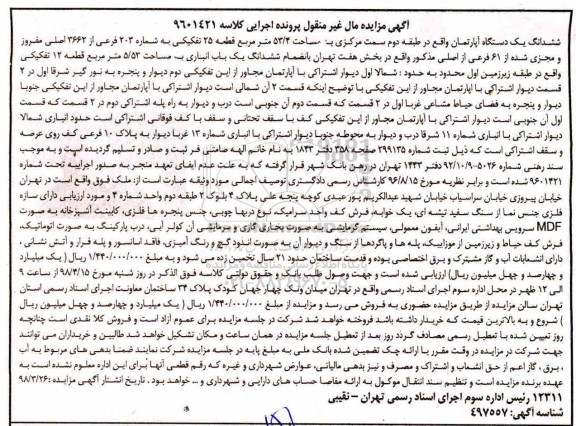 آگهی مزایده مال غیر منقول پرونده اجرایی کلاسه ۹۶۰۱۴۲۱
ششدانگ یک دستگاه آپارتمان واقع در طبقه دوم سمت مرکزی به مساحت ۵۳/۴ متر مربع قطعه ۲۵ تفکیکی به شماره ۲۰۳ فرعی از ۳۶۶۲ اصلی مفروز
و مجزی شده از ۶۱ فرعی از اصلی مذکور واقع در بخش هفت تهران بانضمام ششدانگ یک باب انباری به مساحت ۵/۵۲ متر مربع قطعه ۱۲ تفکیکی
واقع در طبقه زیرزمین اول محدود به حدود : شمالا اول دیوار اشتراکی با آپارتمان مجاور از این تفکیکی دوم دیوار و پنجره به نور گیر شرقا اول در ۲
قسمت دیوار اشتراکی با آپارتمان مجاور از این تفکیکی با توضیح اینکه قسمت ۲ آن شمالی است دیوار اشتراکی با آپارتمان مجاور از این تفکیکی جنوبا
دیوار و پنجره به فضای حیاط مشاعی غربا اول در ۲ قسمت که قسمت دوم آن جنوبی است درب و دیوار به راه پله اشتراکی دوم در ۲ قسمت که قسمت
اول آن جنوبی است دیوار اشتراکی با آپارتمان مجاور از این تفکیکی کف با سقف تحتانی و سقف با کف فوقانی اشتراکی است حدود انباری شمالا
دیوار اشتراکی با انباری شماره ۱۱ شرقا درب و دیوار به محوطه جنوبا دیوار اشتراکی با انباری شماره ۱۳ غربا دیوار به پلاک ۱۰ فرعی کف روی عرصه
و سقف اشتراکی است که ذیل ثبت شماره ۲۹۹۱۳۵ صفحه ۳۵۸ دفتر ۱۸۳۳ به نام خانم الهه صامتی فر ثبت و صادر و تسلیم گردیده است و به موجب
سند رهنی شماره ۵۰۲۶-۹۲/۱۰/۹ دفتر ۱۴۴۳ تهران در رهن بانک شهر قرار گرفته که به علت عدم ایفای تعهد منجر به صدور اجراییه تحت شماره
۹۶۰۱۴۲۱ شده است و برابر نظریه مورخ ۹۶/۸/۱۵ کارشناس رسمی دادگستری توصیف اجمالی مورد وثیقه عبارت است از: ملک فوق واقع است در تهران
خیابان پیروزی خیابان سرآسیاب خیابان شهید عبدالکریم پور عبدی کوچه پنجه علی پلاک ۴ بلوک ۲ طبقه دوم واحد شماره ۴ و مورد ارزیابی دارای سازه
فلزی جنس نما از سنگ سفید تیشه ای، یک خوابه فرش کف واحد سرامیک نوع دربها چوبی، جنس پنجره ها فلزی، کابینت آشپزخانه به صورت
MDF سرویس بهداشتی ایرانی، آیفون معمولی، سیستم گرمایشی به صورت بخاری گازی و سرمایشی آن کولر آبی، درب پارکینگ به صورت اتوماتیک،
فرش کف حیاط و زیرزمین از موزاییک، پله ها و پاگردها از سنگ و دیوار آن به صورت اندود گچ و رنگ آمیزی، فاقد آسانسور و پله فرار و آتش نشانی ،
دارای انشعابات آب و گاز مشترک و برق اختصاصی بوده و قدمت ساختمان حدود ۲۱ سال تخمین زده می شود و به مبلغ ۱/۴۴۰/۰۰۰/۰۰۰ ریال ( یک میلیارد
و چهارصد و چهل میلیون ریال) ارزیابی شده است و جهت وصول طلب بانک و حقوق دولتی کلاسه فوق الذکر در روز شنبه مورخ ۹۸/۴/۱۵ از ساعت ۹
الی ۱۲ ظهر در محل اداره سوم اجرای اسناد رسمی واقع در تهران میدان ونک چهار جهان کودک پلاک ۳۴ ساختمان معاونت اجرای اسناد رسمی استان
تهران سالن مزایده از طریق مزایده حضوری به فروش می رسد و مزایده از مبلغ ۱/۴۴۰/۰۰۰/۰۰۰ ریال ( یک میلیارد و چهارصد و چهل میلیون ریال
) شروع و به بالاترین قیمت که خریدار داشته باشد فروخته خواهد شد شرکت در جلسه مزایده برای عموم آزاد است و فروش کلا نقدی است چنانچه
روز تعیین شده با تعطیل رسمی مصادف گردد روز بعد از تعطیل جلسه مزایده در همان ساعت و مکان تشکیل خواهد شد طالبین و خریداران می توانند
جهت شرکت در مزایده در وقت مقرر با ارائه چک تضمین شده بانک ملی به مبلغ پایه در جلسه مزایده شرکت نمایند ضمنا بدهی های مربوط به آب
، برق ، گاز اعم از حق انشعاب و اشتراک و مصرف و نیز بدهی مالیاتی، عوارض شهرداری و غیره که رقم قطعی آنها برای این اداره معلوم نشده است به
عهده برنده مزایده است و تنظیم سند انتقال موکول به ارائه مفاصا حساب های دارایی و شهرداری و ... خواهد بود . تاریخ انتشار آگهی مزایده : ۹۸/۳/۲۶
۱۲۳۱۱ رئیس اداره سوم اجرای اسناد رسمی تهران - نقیبی
شناسه آگهی: ۴۹۷۵۵۷